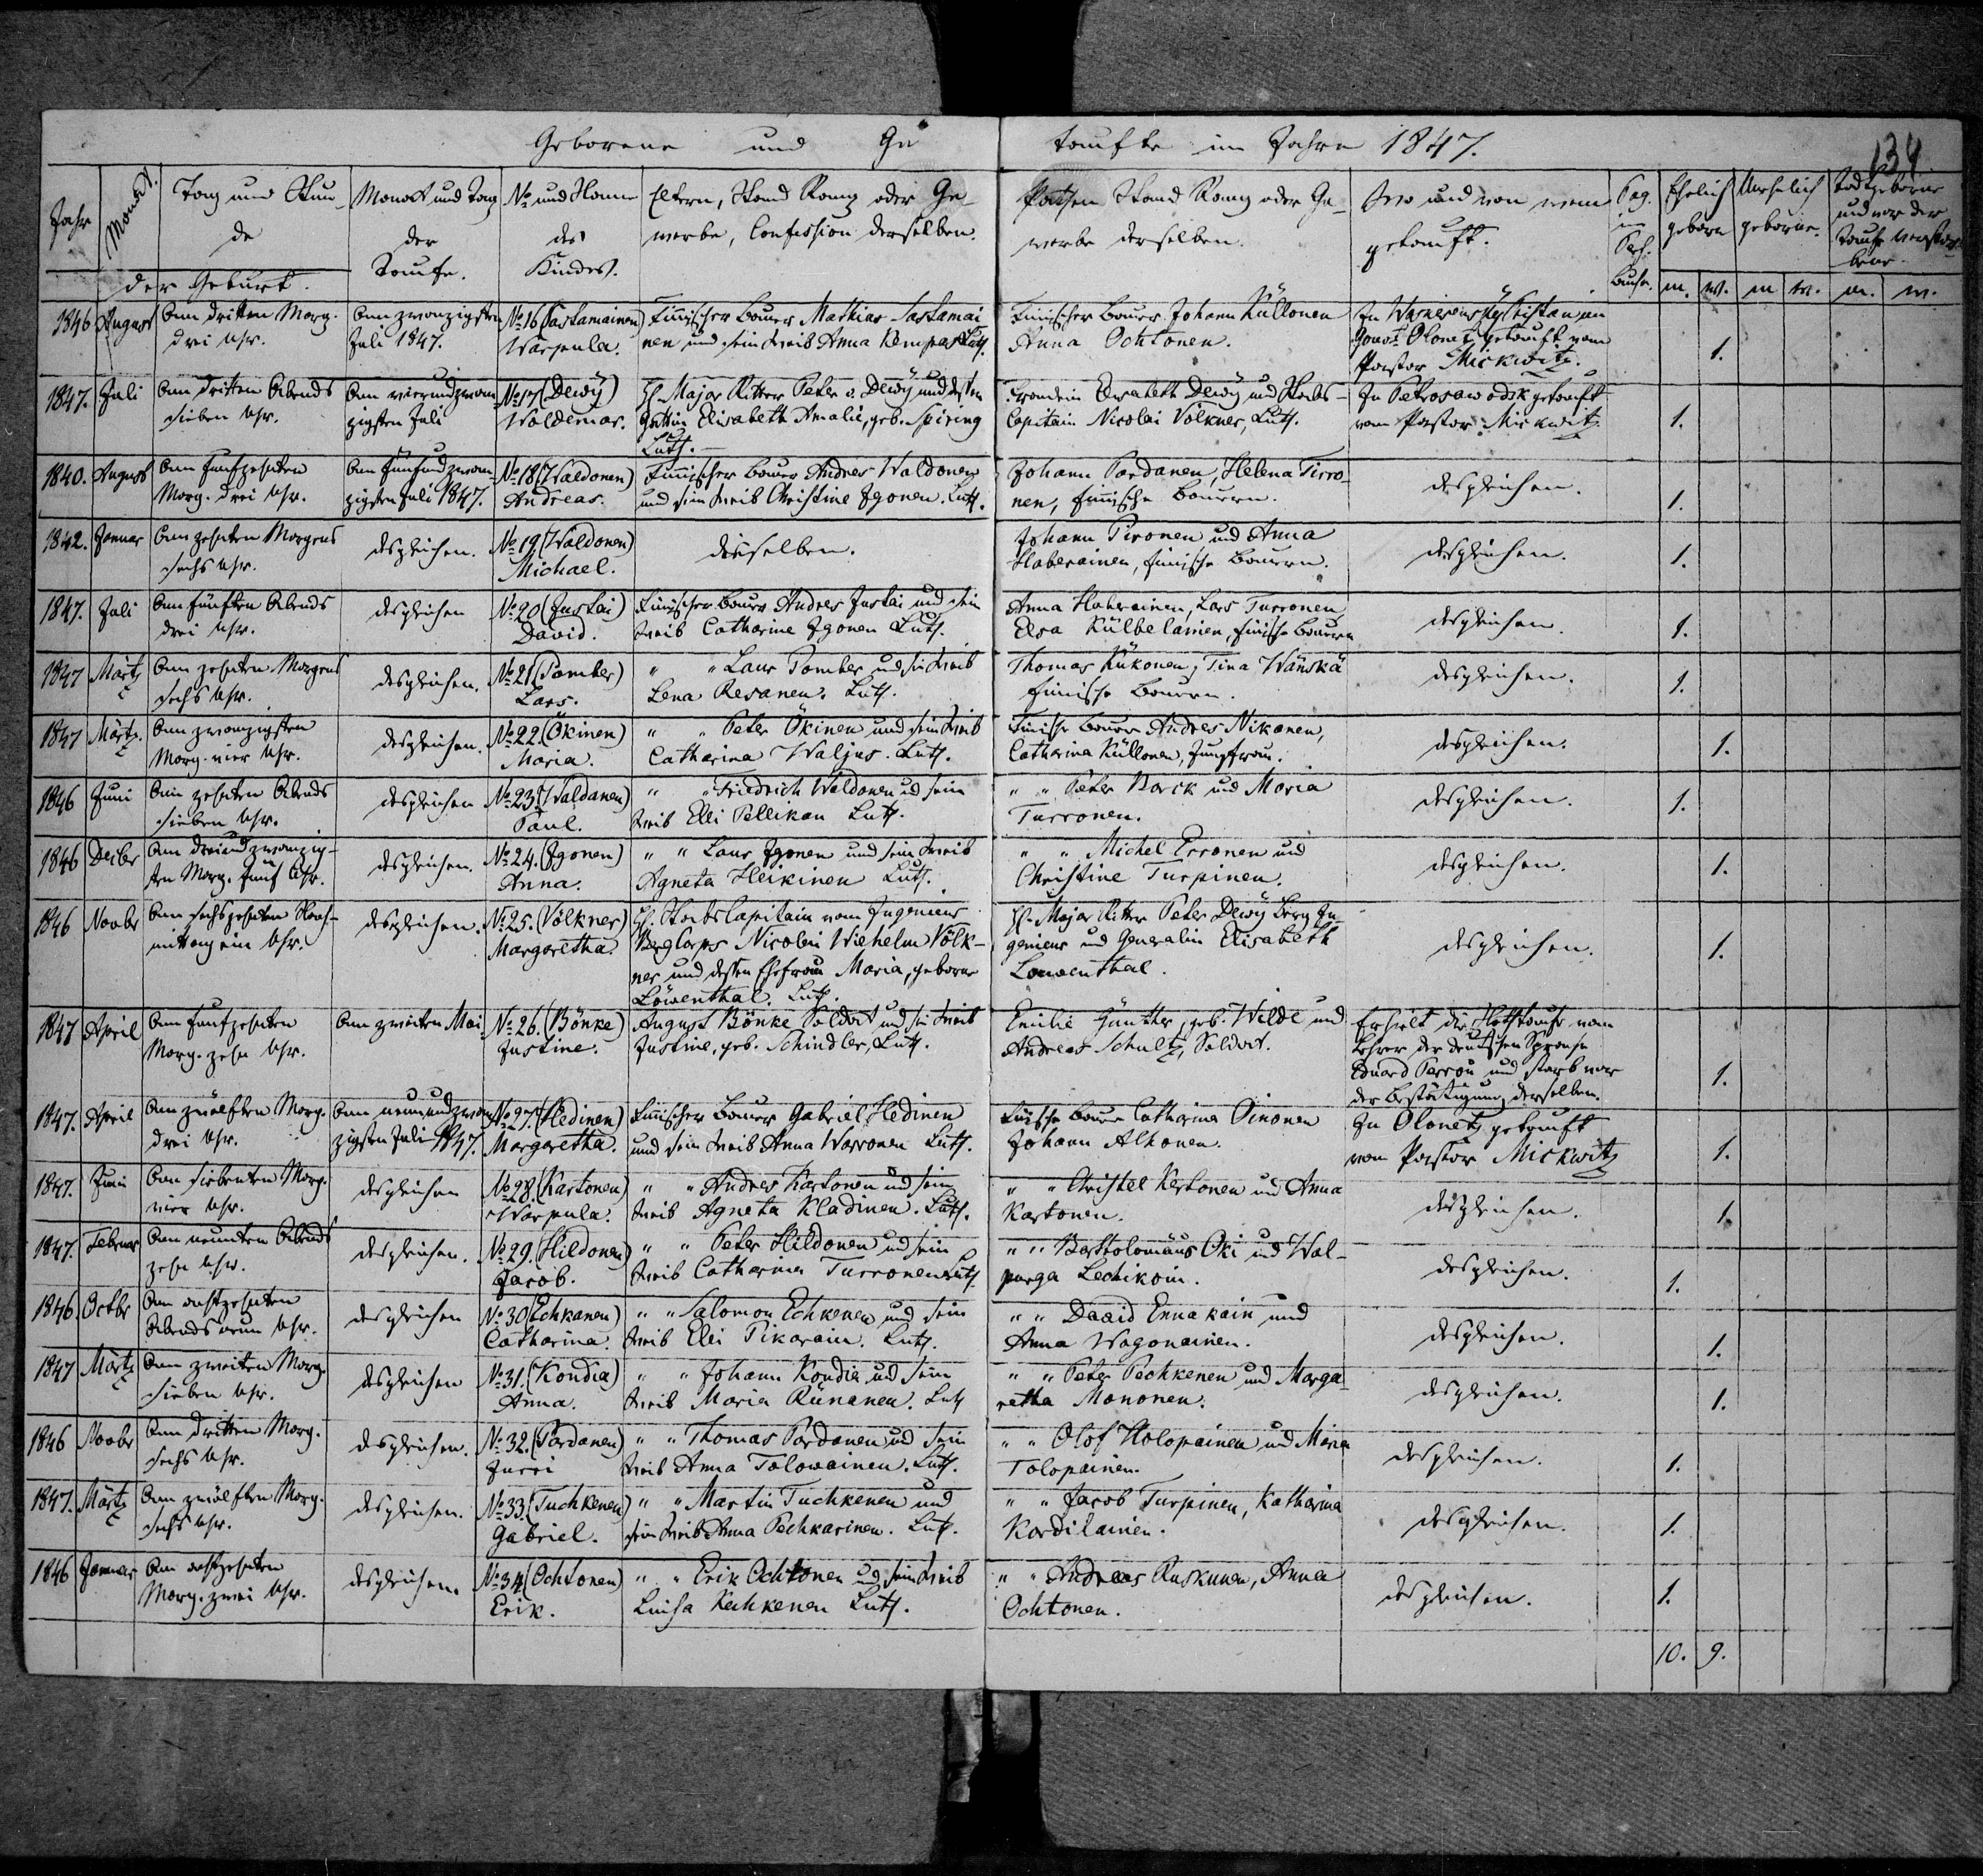 Geborene und Ge
taufte im Jahre 1847.
134
Jahr
Monat.
Tag und Stun-
de
der Geburt.
Monat und Tag
der
Taufe.
No und Name
des
Kindes.
Eltern, Stand Rang oder Ge-
werbe, Confession derselben.
Pathen Stand Rang oder Ge-
werbe derselben.
Wo und von wem
getauft.
Pag.
im
Buche.
Ehelich
geboren
Unehelich
geborene.
Todtgeborene
und vor der
Taufe verstor-
bene.
m. w. m w. m. w.
1846 August Am dritten Morg.
drei Uhr.
Am zwanzigsten
Juli 1847.
No 16 (Sastamainen)
Warpula.
Finnischer Bauer Mathias Sastamai
nen und sein Weib Anna Kempas Luth.
Finnischer Bauer Johann Küllonen
Anna Ochtonen.
In
Olonetz getauft vom
Pastor Mickwitz.
1.
1847. Juli Am dritten Abends
sieben Uhr.
Am vierundzwan
zigsten Juli
No 17 (Dewÿ)
Woldemar.
H. Major Ritter Peter v. Dewÿ und dessen
Gattin Elisabeth Amalie, geb. Spiring
Luth.
Elisabeth Dewÿ und Stabs-
Capitain Nicolai Völkner, Luth.
In Petrosawodsk getauft
vom Pastor Mickwitz
1.
1840. August Am Funfzehnten
Morg. drei Uhr.
Am Funfundzwan
zigsten Juli 1847.
No 18 (Waldonen)
Andreas.
Finnischer Bauer Andres Waldonen
und sein Weib Christine Igonen. Luth.
Johann Pardanen, Helena Tirro-
nen, finnische Bauern.
desgleichen.
1.
1842. Januar Am zehnten Morgens
sechs Uhr.
desgleichen.
No 19 (Waldonen)
Michael.
dieselben.
Johann Pironen und Anna
Haberainen, finnische Bauern.
desgleichen.
1.
1847. Juli Am fünften Abends
drei Uhr.
desgleichen
No 20 (Justai)
David.
Finnischer Bauer Andres Justai und sein
Weib Catharine Igonen Luth.
Anna Haberainen, Lars Turronen
Elsa Külbelainen, finnische Bauern
desgleichen.
1.
1847 Märtz Am zehnten Morgens
sechs Uhr.
desgleichen.
No 21 (Pomber)
Lars.
" " Laur Pomber und sein Weib
Lena Resanen. Luth.
Thomas Kükonen, Tina Wänskä
finnische Bauern.
desgleichen.
1.
1847 Märtz. Am zwanzigsten
Morg. vier Uhr.
desgleichen.
No 22. (Ökinen)
Maria.
" " Peter Ökinen und sein Weib
Catharina Waljus. Luth.
Finnische Bauer Andres Nikonen,
Catharina Küllonen, Jungfrau.
desgleichen.
1.
1846 Juni Am zehnten Abends
sieben Uhr.
desgleichen
No 23. (Waldanen)
Paul.
" " Friedrich Waldonen und sein
Weib Elli Pellikan Luth.
" " Peter Borck und Maria
Turronen.
desgleichen.
1.
1846 Decbr Am dreiundzwanzig-
sten Morg. fünf Uhr.
desgleichen.
No 24. (Igonen)
Anna.
" " Laur Igonen und sein Weib
Agneta Heikinen Luth.
" " Michel Erronen und
Christine Turpinen.
desgleichen.
1.
1846 Novbr Am sechszehnten Nach-
mittag ein Uhr.
desgleichen.
No 25. (Völkner)
Margaretha.
H. Stabs Capitain vom Ingenieur
Berg Corps Nicolai Wilhelm Völk-
ner und dessen Ehefrau Maria, geborne
Löwenthal. Luth.
H. Major Ritter Peter Dewÿ Berg In-
genieur und Generalin Elisabeth
Löwenthal.
desgleichen.
1.
1847 April Am Funfzehnten
Morg. zehn Uhr.
Am zweiten Mai.
No 26. (Bönke)
Justine.
August Bönke Soldat und sein Weib
Justine, geb. Schindler, Luth.
Emilie Günther, geb. Wilde und
Andreas Schultz, Soldat.
Erhielt die Nothtaufe vom
Lehrer der deutschen Sprache
Eduard Parrou und starb vor
der Bestätigung derselben.
1.
1847. April Am zwölften Morg.
drei Uhr.
Am neunundzwan
zigsten Juli 1847.
No 27. (Hedinen)
Margaretha.
Finnischer Bauer Gabriel Hedinen
und sein Weib Anna Warronen Luth.
Finnische Bauer Catharina Oinonen
Johann Alkonen.
In Olonetz getauft
vom Pastor Mickwitz
1.
1847. Juni Am siebenten Morg.
vier Uhr.
desgleichen
No 28. (Kartonen)
Warpula.
" " Andres Kartonen und sein
Weib Agneta Kladinen. Luth.
" " Christel Kertonen und Anna
Kartonen.
desgleichen.
1.
1847. Februar Am neunten Abends
zehn Uhr.
desgleichen.
No 29. (Hildonen)
Jacob.
" " Peter Hildonen und sein
Weib Catharina Turronen Luth.
" " Bartholomäus Oki und Wal-
purga Lechikoin.
desgleichen.
1.
1846. Octbr Am achtzehnten
Abends neun Uhr.
desgleichen
No 30 (Echkanen)
Catharina.
" " Salomon Echkenen und sein
Weib Elli Pikarain. Luth.
" " David Ennakain und
Anna Wagonainen.
desgleichen.
1.
1847 Märtz Am zweiten Morg.
sieben Uhr.
desgleichen
No 31. (Kondia)
Anna.
" " Johann Kondia und sein
Weib Maria Rünanen. Luth
" " Peter Pechkenen und Marga-
retha Mononen.
desgleichen.
1.
1846 Novbr Am dritten Morg.
sechs Uhr.
desgleichen.
No 32. (Pardanen)
Jurri
" " Thomas Pardanen und sein
Weib Anna Tolowainen. Luth.
" " Olof Holopainen und Maria
Tolopainen.
desgleichen.
1.
1847. Märtz Am zwölften Morg.
sechs Uhr.
desgleichen.
No 33. (Tuchkenen)
Gabriel.
" " Martin Tuchkenen und
sein Weib Anna Pechkarinen. Luth.
" " Jacob Turpinen, Katharina
Kardilainen.
desgleichen.
1.
1846 Januar Am achtzehnten
Morg. zwei Uhr.
desgleichen.
No 34 (Ochtonen)
Erik.
" " Erik Ochtonen und sein Weib
Luisa Kechkenen Luth.
" " Andreas Ruskunen, Anna
Ochtonen.
desgleichen.
1.
10. 9.